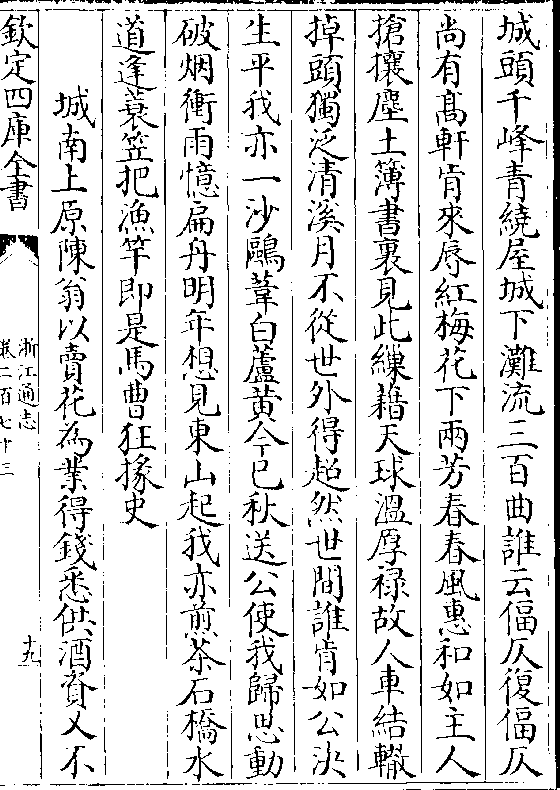 城頭千峰青繞屋城下灘流三百曲誰云偪仄復偪仄
尚有髙軒肯來辱紅梅花下兩芳春春風惠和如主人
搶攘塵土簿書裏見此繅藉天球温厚禄故人車結轍
掉頭獨泛清溪月不從世外得超然世間誰肯如公決
生平我亦一沙鷗葦白蘆黄今已秋送公使我歸思動
破烟衝雨憶扁舟明年想見東山起我亦煎茶石橋水
道逢蓑笠把漁竿即是馬曹狂掾史
城南上原陳翁以賣花為業得錢悉供酒資又不
欽定四庫全書
浙江通志
卷二百七十三
十九